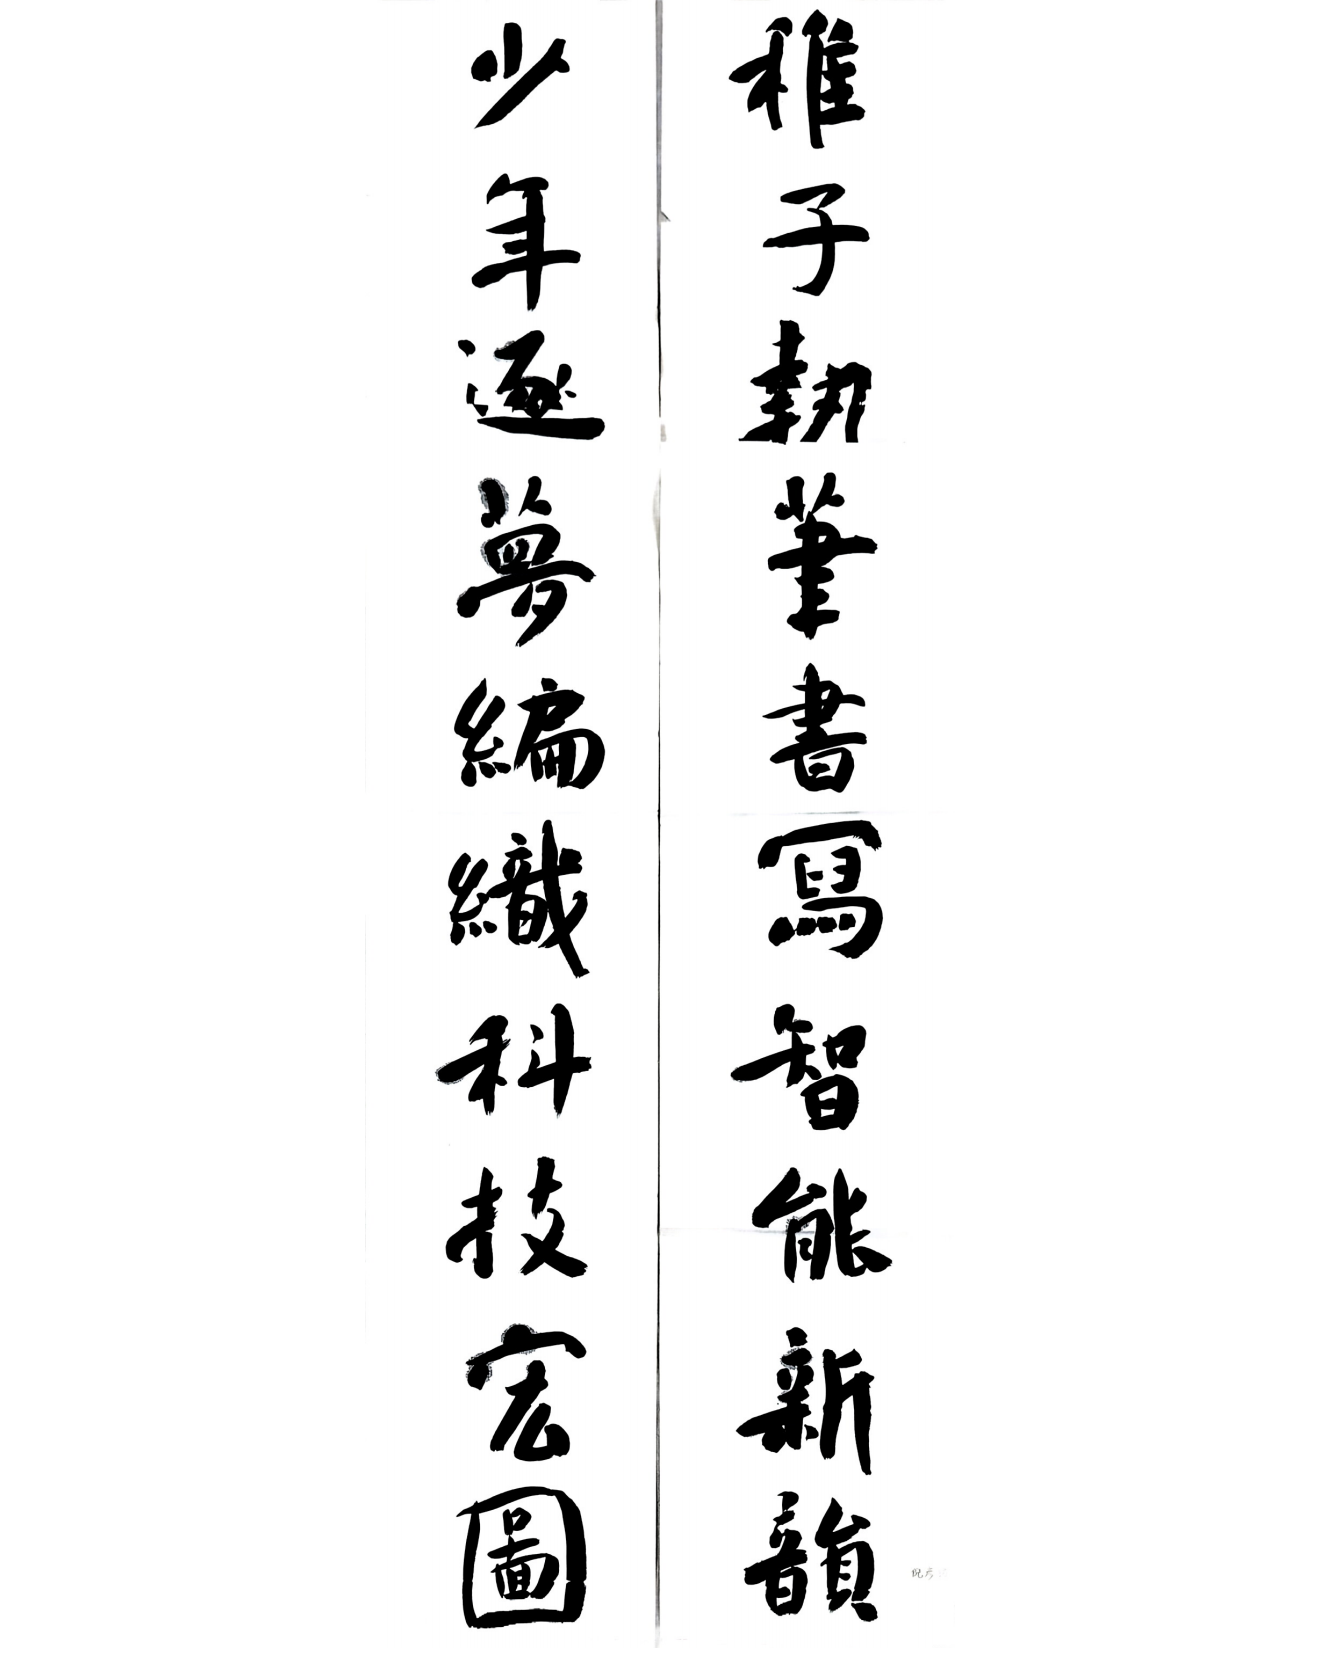 稚子執筆書寫智能新韻
少年逐夢編織科技宏圖